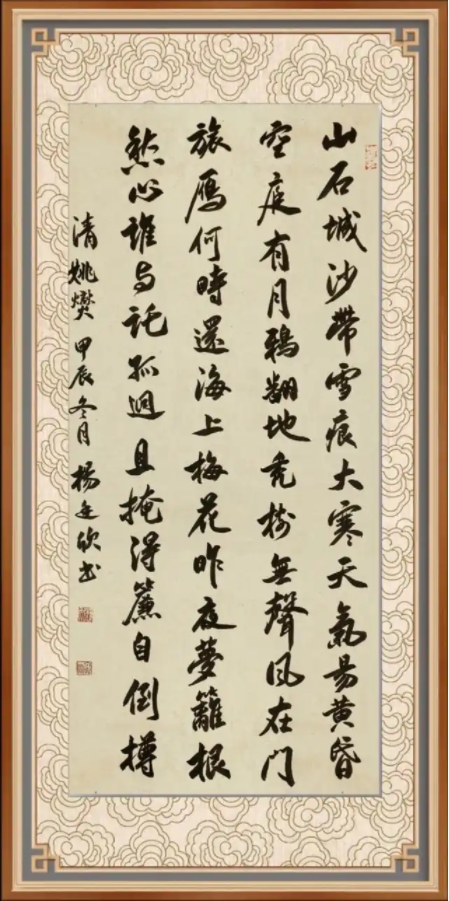 山石城沙帶雪痕大寒天氣易黃昏
空庭有月鴉翻地禿樹無聲風在門
旅鴈何時還海上梅花昨夜夢籬根
愁心誰与託孤迥且掩湘簾自倒樽
清姚燮 甲辰冬月 楊廷欣書